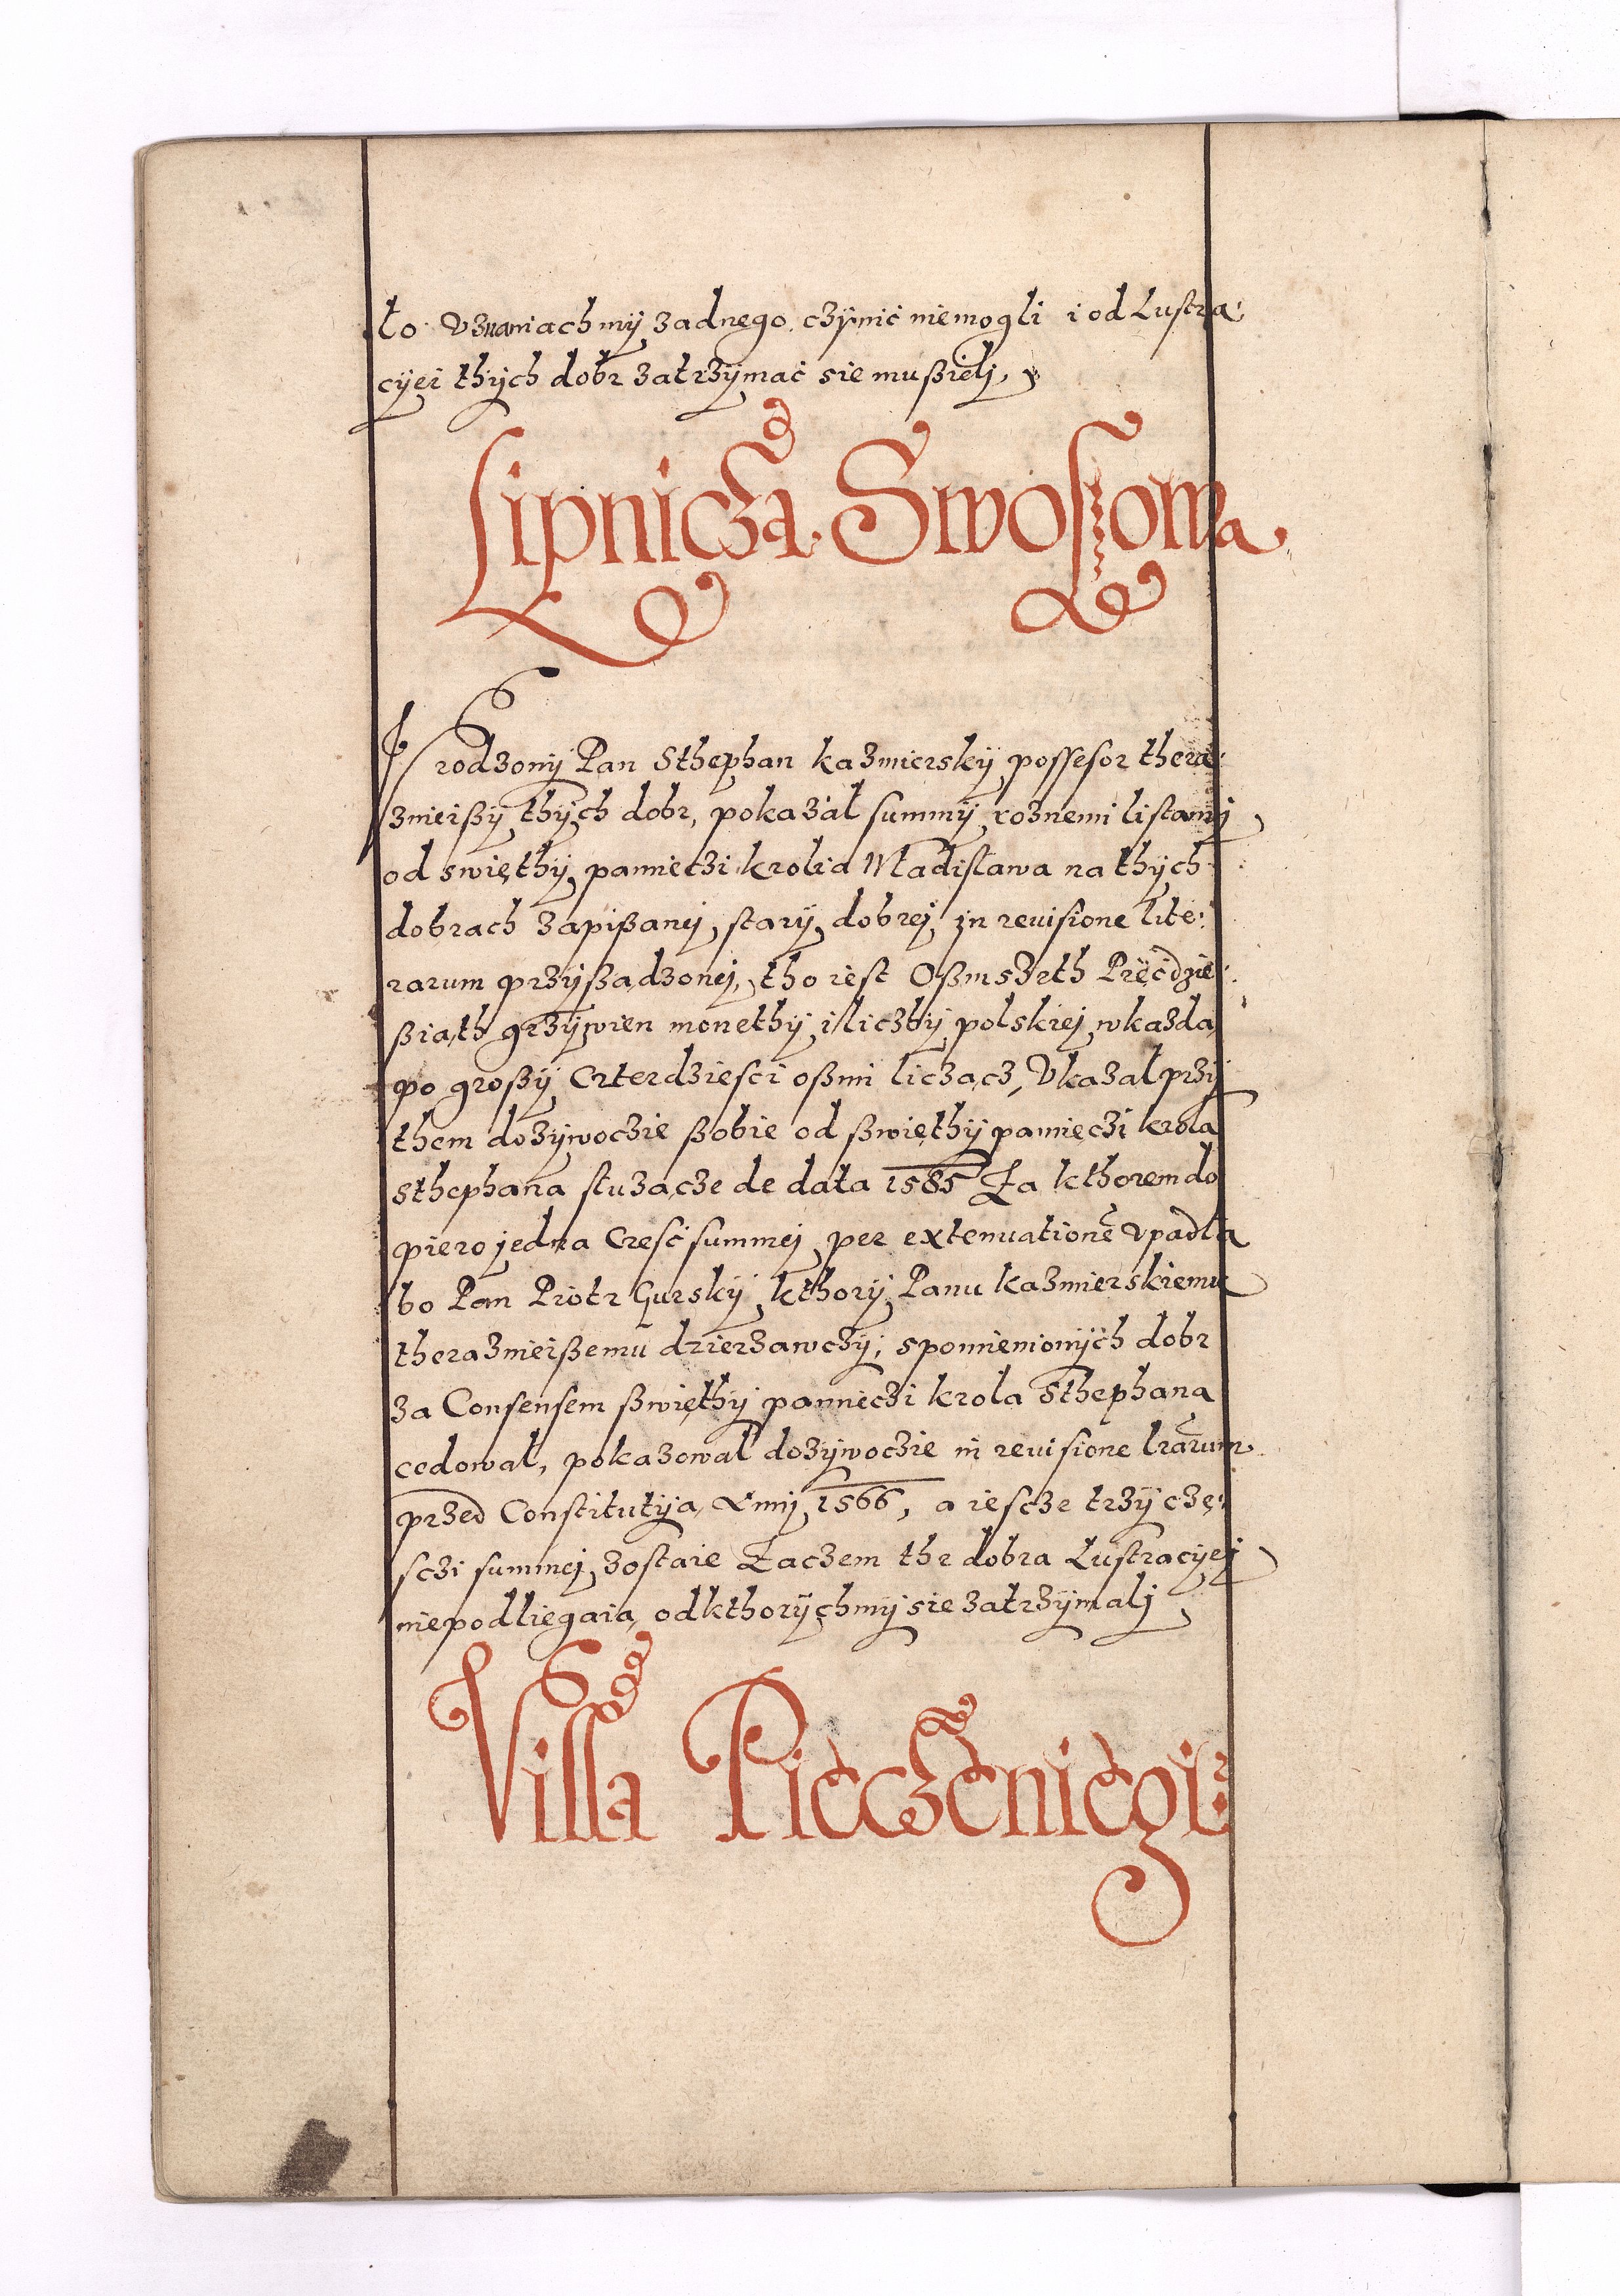 to uznaniach my zadnego czÿnic niemogli i od Lustra:
cÿei thÿch dobr zatrzÿmać sie mußielj
Lipnicza Swoszowa
Urodzonÿ Pan Sthephan kazmierskÿ possesor thera:
zmieißÿ thÿch dobr, pokazal summÿ roznemi listamj
od swięthÿ pamieczi krolia Wladislawa na thÿch
dobrach zapißanej, starÿ dobrej, in reuisione lite:
rarum przÿßądzonej, tho iest Oßmszeth Pięćdzie:
ßiąth grzÿwien monethÿ i liczbÿ polskiej, wkazdą
po großÿ Czterdziesci oßmi licząc, Ukazal przÿ
them dozÿwoczie ßobie od ßwięthÿ pamięczi krola
Sthephana sluzące de data 1585 Za kthorem do
piero jedna Czesć summej per extenuationē upadla
bo Pan Piotr Gurskÿ kthorÿ Panu kazmierskiemu
therazmieißemu dzierzawczÿ, spomienionÿch dobr
za Consensem ßwięthÿ pamięczi krola Sthephana
cedowal, pokazowal dozÿwoczie in reuisione lrārum
przed Constitutÿą Anni 1566, a iescze trzÿ czę:
sczi summej zostaie Zaczem the dobra Lustracÿej
niepodliegaią, odkthorÿchmÿ sie zatrzÿmalj
Villa Pieczeniegi